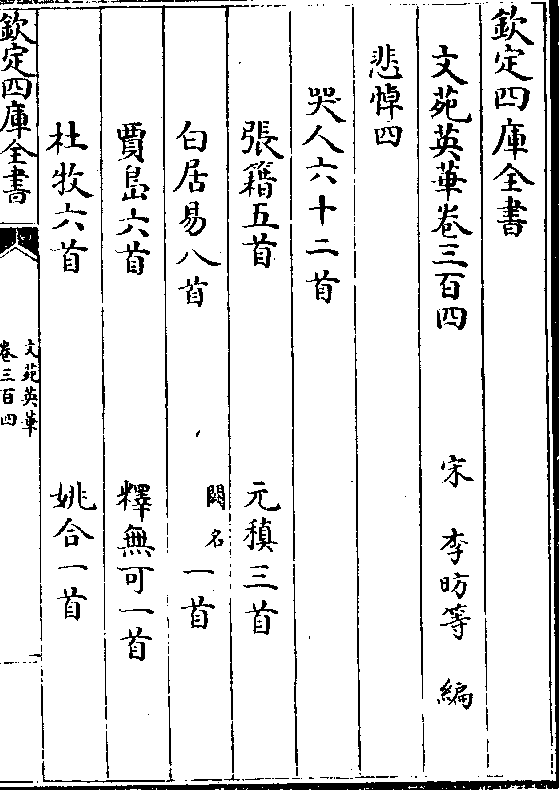 欽定四庫全書
文苑英華卷三百四
宋 李昉等 編
悲悼四
哭人六十二首
張籍五首 元稹三首
白居易八首 闕名一首
賈島六首 釋無可一首
杜牧六首 姚合一首
欽定四庫全書
文苑英華
卷三百四